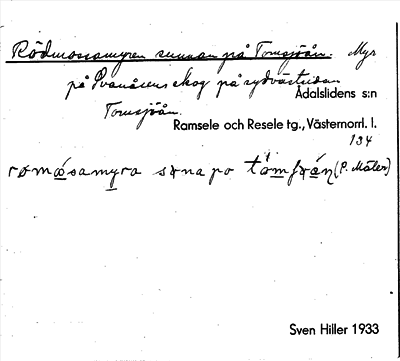 Rödmossamyren sunnan på Tomsjöån. Myr
på Svanåsens skog på sydvästsidan
Ådalslidens s:n
Tomsjöån.
Ramsele och Resele tg., Västernorrl. l.
134
(P. Mäler)
Sven Hiller 1933